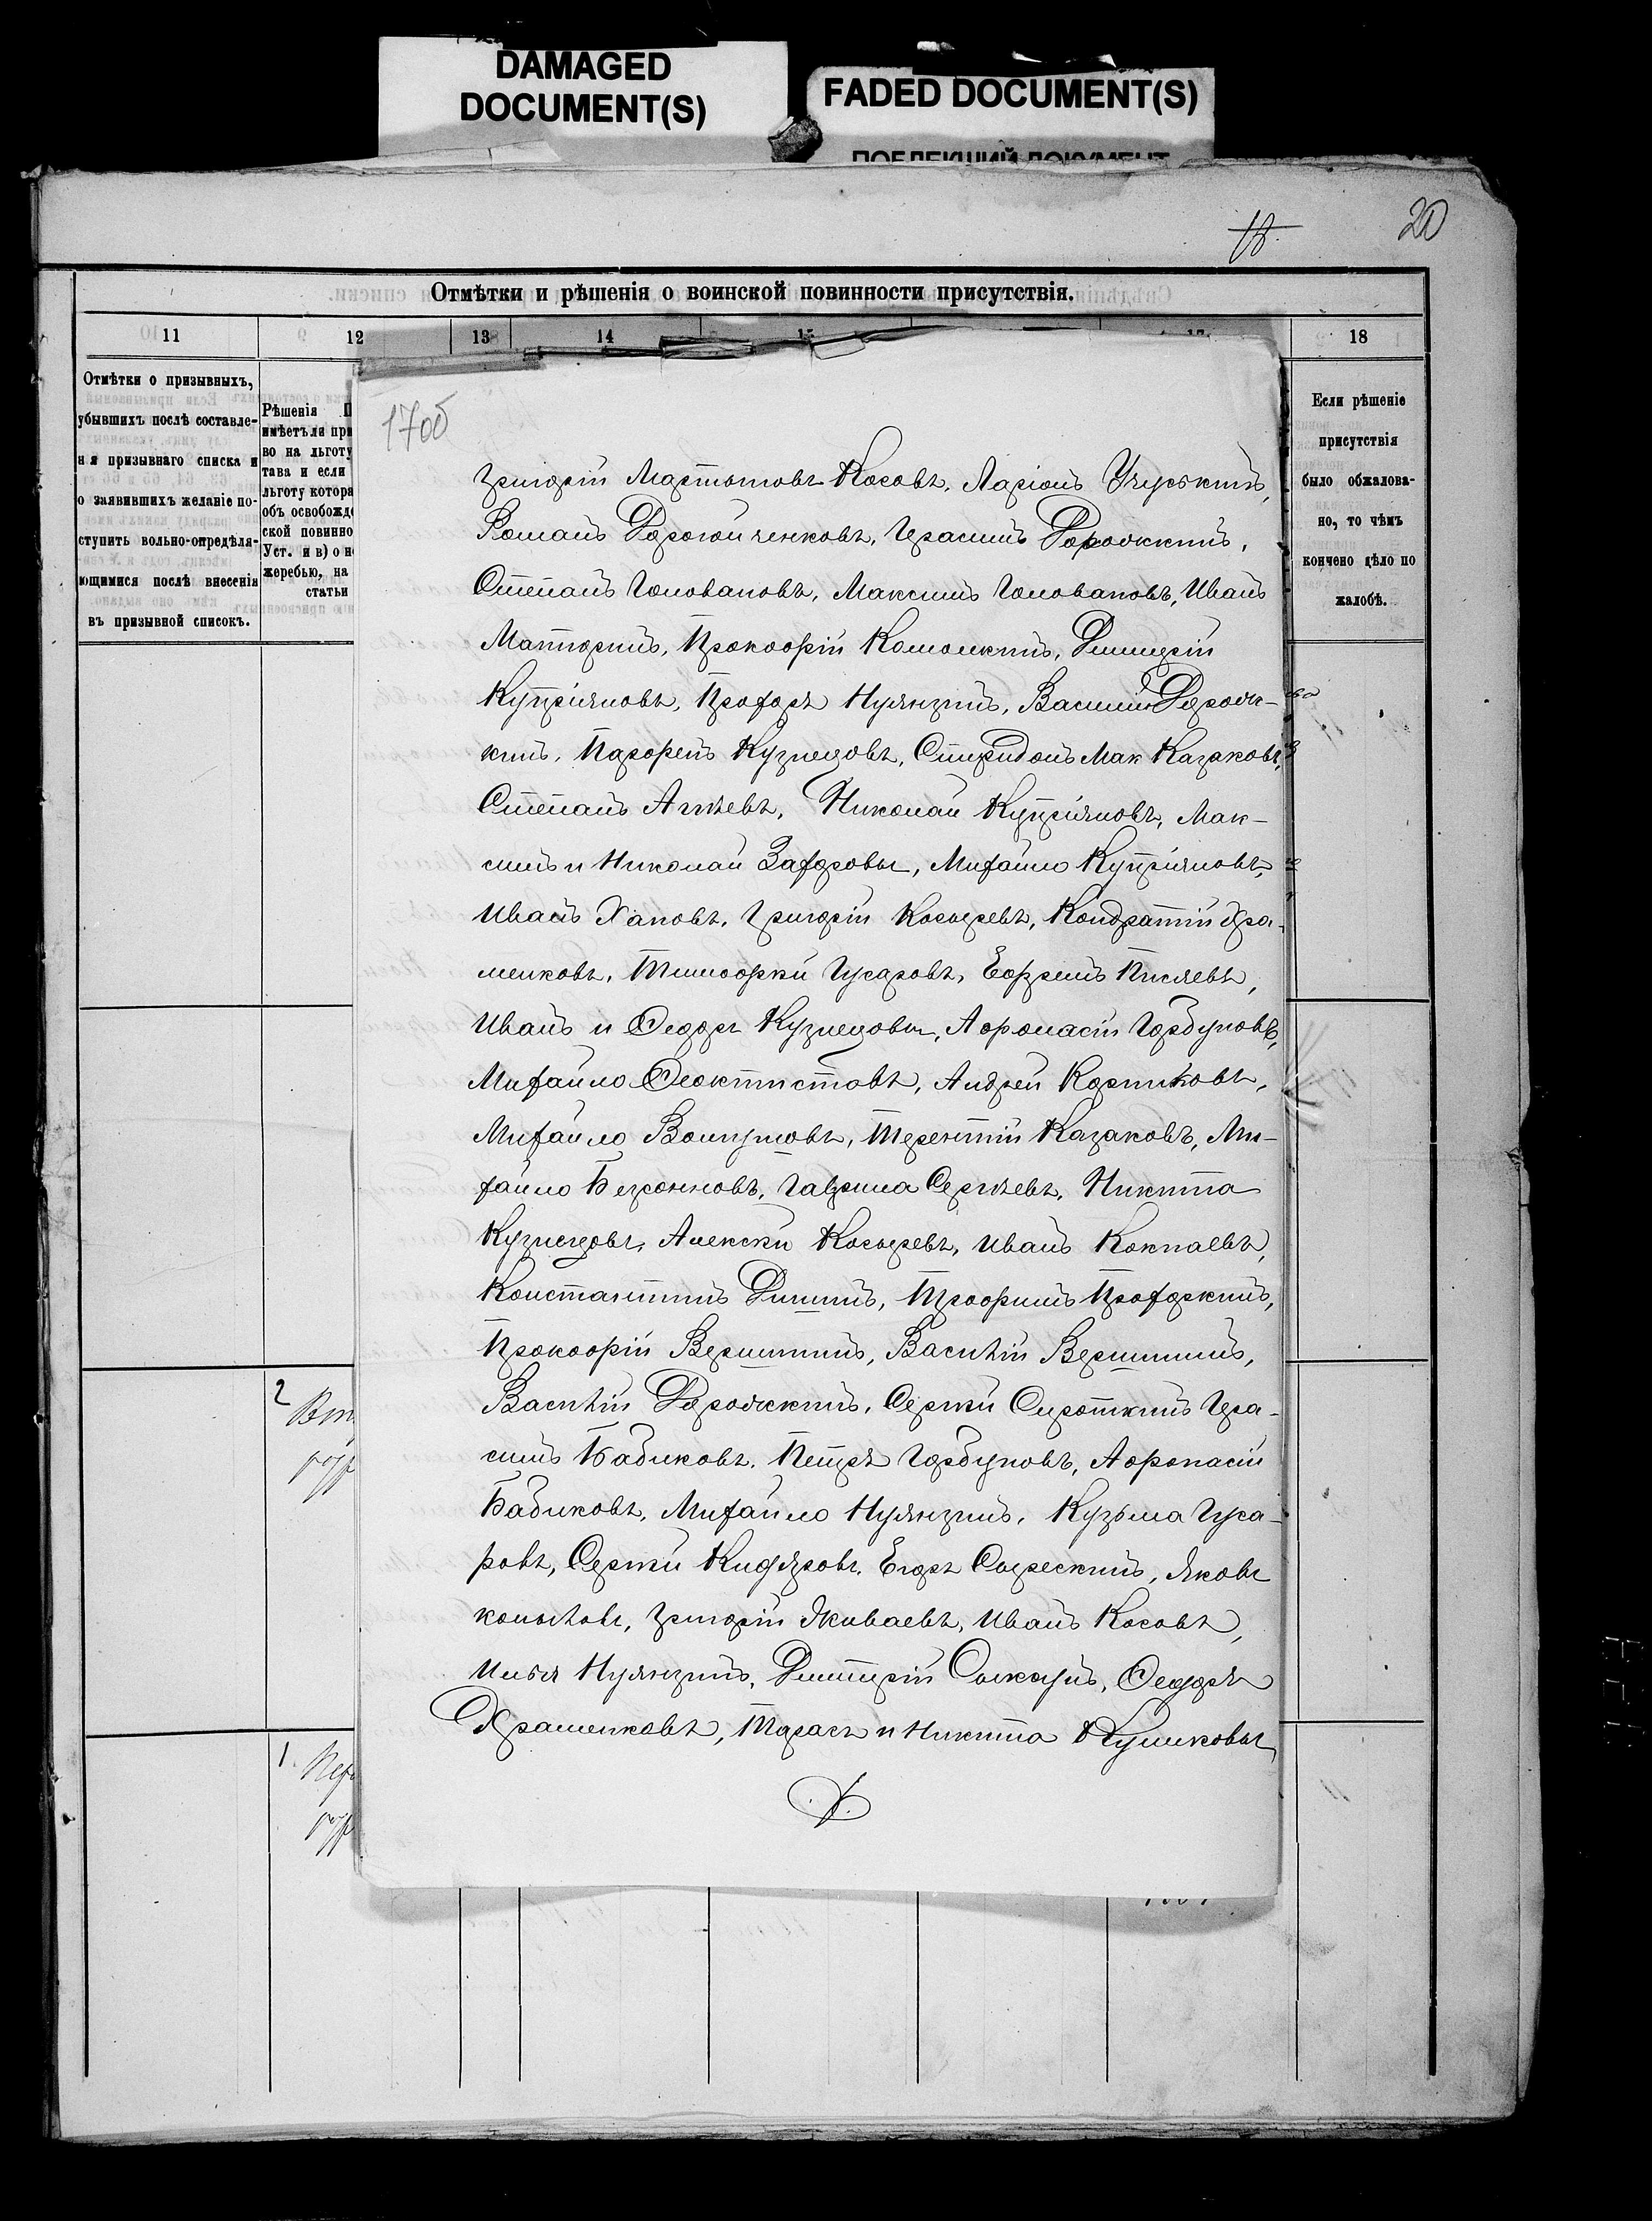 DAMAGED
DOCUMENT(S)
FADED DOCUMENT(S)
ПОБЛЕКШИЙ ДОКУМЕНТ
18.
20
Отмѣтки и рѣшенія о воинской повинности присутствія.
11 12 13 14 15 17 18
Отмѣтки о призывныхъ,
убывшихъ послѣ составле-
нія призывнаго списка и
о заявившихъ желаніе по-
ступить вольно-опредѣля-
ющимися послѣ внесенія
въ призывной списокъ.
Рѣшенія П
имѣетъ ли пр
во на льготу
тава и если
льготу котора
объ освобожд
ской повинно
Уст. и в) о н
жеребью, на
статьи
Если рѣшеніе
присутствія
было обжалова-
но, то чѣмъ
кончено дѣло по
жалобѣ.
170об
Григорій Мартыновъ Косовъ, Ларіонъ
Романъ Герасимъ
Степанъ Головановъ, Максимъ Головановъ, Иванъ
Прокофій Дмитрій
Купріяновъ, Прохоръ Нуянзинъ, Василій Дорож-
кинъ, Парфенъ Кузнецовъ, Спиридонъ Мак Казаковъ,
Степанъ Агѣевъ, Николай Купріяновъ, Мак-
симъ и Николай Захаровы, Михайло Купріяновъ,
Иванъ Хановъ, Григорій Косыревъ, Кондратій Хра-
менковъ, Тимофѣй Гусаровъ, Ефремъ Кисляевъ,
Иванъ и Ѳедоръ Кузнецовы, Афонасій Горбуновъ,
Михайло Ѳеоктистовъ, Андрей Карпиковъ,
Михайло Терентій Казаковъ, Ми-
хайло Гаврила Сергѣевъ, Никита
Кузнецовъ, Алексѣй Косыревъ, Иванъ Кокнаевъ,
Константинъ Трофимъ Прохоркинъ,
Прокофій Вершининъ, Василій Вершининъ,
Василій Дорожкинъ, Сергѣй Сироткинъ Гера-
симъ Бабиковъ, Петръ Горбуновъ, Афонасій
Бабиковъ, Михайло Нуянзинъ, Кузьма Гуса-
ровъ, Сергѣй Егоръ Сырескинъ, Яковъ
Копыловъ, Григорій Якиваевъ, Иванъ Косовъ,
Илья Нуянзинъ, Дмитрій Ѳедоръ
Храменковъ, Тарасъ и Никита Кушковы,
2
1.